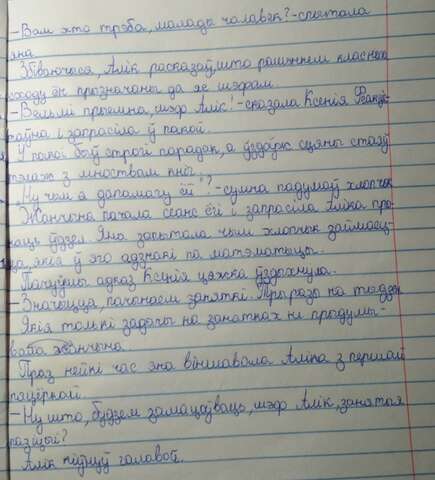 - Вам хто трэба, малады чалавек? - спытала
яна.
Збіваючыся, Алік расказаў, што рашэннем класнага
сходу ён прызначаны да яе шэфам.
- Вельмі прыемна, шэф Алік! - сказала Ксенія
і запрасіла ў пакой.
У пакоі быў строгі парадак, а ўздоўж сцяны стаяў
з мноствам кніг.
- Ну чым я дапамагу ёй? - сумна падумаў хлопчык
Жанчына пачала сеанс ёй і запрасіла Аліка пры-
няць ўдзел. Яна запытала чым хлопчык займаец-
ца, якія ў яго адзнакі па матэматыцы.
Пачуўшы адказ Ксенія цяжка ўздыхнула.
- Значыцца, пачынаем заняткі. Тры разы на тыдзень
Якія толькі задачы на занятках не прыдумы-
вала жанчына.
Праз нейкі час яна віншавала Аліка з першай
пяцёркай.
- Ну што, будзем замацоўваць, шэф Алік, заняткі
разам?
Алік кіўнуў галавой.